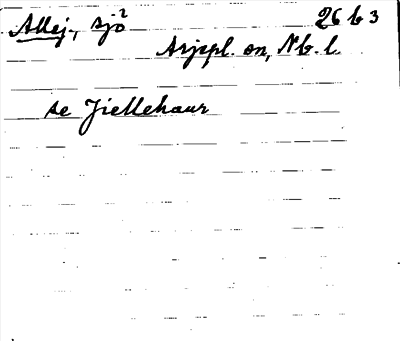 Allej., sjö² 26 b 3
Arjepl. sn, Nb. l.
se Jiellehaur